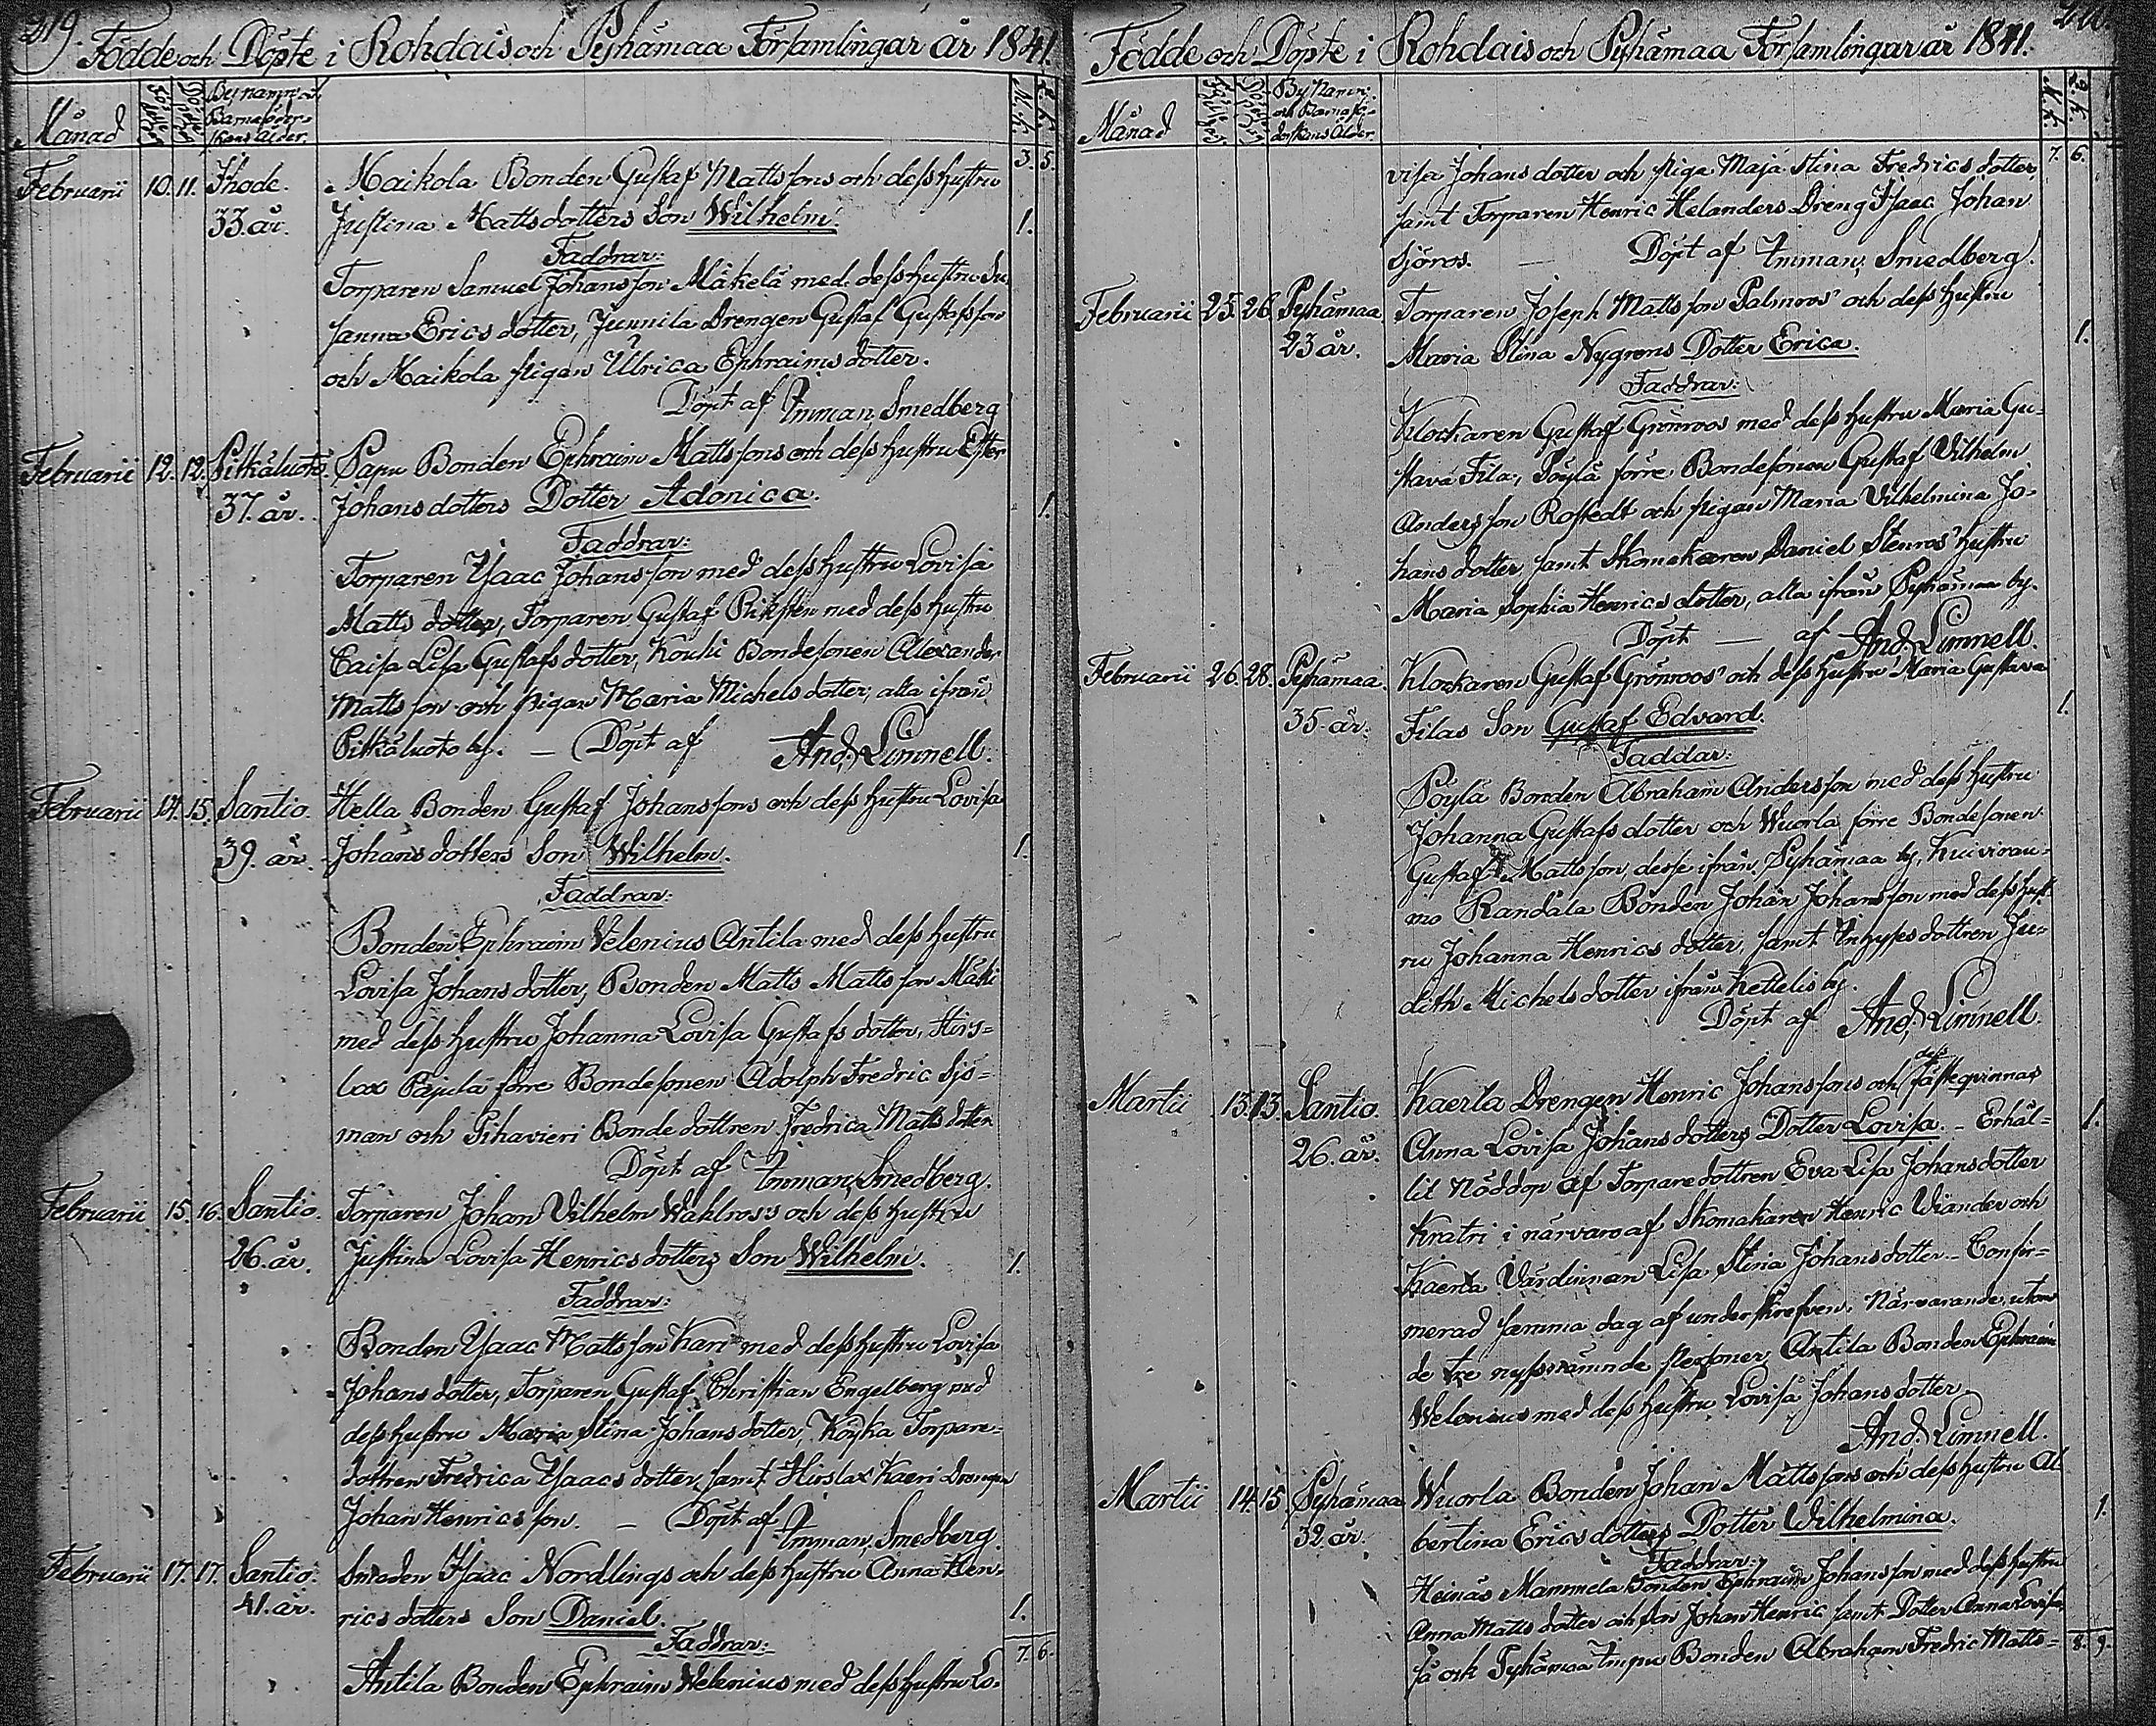 219.
Födde och Döpte i Rohdais och Pyhämaa Församlingar år 1841.
Månad
Bynamn och
Barnaföder-
skans ålder.
M.k.
Q.k.
3. 5.
Februarii 10. 11. Ihode. Maikola Bonden Gustaf Mattssons och dess hustru
33. år. Justina Mattsdotters Son Wilhelm. 1.
Faddrar:
Torparen Samuel Johansson Mäkelä med dess hustru Su-
sanna Ericsdotter, Junnila Drengen Gustaf Gustafsson
och Maikola pigan Ulrica Ephraimsdotter.
Döpt af Imman. Smedberg
Februarii 12. 12. Pitkäluoto. Papu Bonden Ephraim Mattssons och dess hustru Ester
37. år. Johansdotters Dotter Adonica. 1.
Faddrar:
Torparen Isaac Johansson med dess hustru Lovisa
Mattsdotter, Torparen Gustaf Piksten med dess hustru
Caisa Lisa Gustafsdotter, Kouhi Bondesonen Alexander
Mattsson och pigan Maria Michelsdotter, alla ifrån
Pitkäluoto by. — Döpt af And. Limnell.
Februarii 14. 15. Santio. Hella Bonden Gustaf Johanssons och dess hustru Lovisa
39. år. Johansdotters Son Wilhelm. 1.
Faddrar:
Bonden Ephraim Velenius Antila med dess hustru
Lovisa Johansdotter, Bonden Matts Mattsson Mäki
med dess hustru Johanna Lovisa Gustafsdotter, Hirs-
lax Pajula förre Bondesonen Adolph Fredric Sjö-
man och Pihavieri Bondedottren Fredrica Mattsdotter
Döpt af Imman. Smedberg.
Februarii 15. 16. Santio. Torparen Johan Vilhelm Wahlross och dess hustru
26. år. Justina Lovisa Henricsdotters Son Wilhelm. 1.
Faddrar:
Bonden Isaac Mattsson Kari med dess hustru Lovisa
Johansdotter, Torparen Gustaf Christian Engelberg med
dess hustru Maria Stina Johansdotter, Köykä Torpare-
dottren Fredrica Isaacsdotter, samt Hirslax Kaeri Drengen
Johan Henricsson. — Döpt af Imman. Smedberg.
Februarii 17. 17. Santio. Smeden Isaac Nordlings och dess hustru Anna Hen-
41. år. ricsdotters Son Daniel. 1.
Faddrar:
7. 6.
Antila Bonden Ephraim Welenius med dess hustru Lo-
220.
Födde och Döpte i Rohdais och Pyhämaa Församlingar år 1841.
Månad
By Namn
och Barnafö-
derskans ålder.
M.k.
Q.k.
7. 6.
visa Johansdotter och piga Maja Stina Fredricsdotter,
samt Torparen Henric Helanders Dreng Isaac Johan
Sjöros. — Döpt af Imman. Smedberg.
Februarii 25. 26. Pyhämaa. Torparen Joseph Mattsson Palmroos och dess hustru
23 år. Maria Stina Nygrens Dotter Erica. 1.
Faddrar:
Klockaren Gustaf Grönroos med dess hustru Maria Gu-
stava Fila, Pöylä förre Bondesonen Gustaf Vilhelm
Andersson Rostedt och pigan Maria Vilhelmina Jo-
hansdotter, samt Skomakaren Daniel Stenros' hustru
Maria Sophia Henricsdotter, alla ifrån Pyhämaa by.
Döpt — af And. Limnell.
Februarii 26. 28. Pyhämaa. Klockaren Gustaf Grönroos' och dess hustru Maria Gustava
35. år. Filas Son Gustaf Edvard. 1.
Faddrar:
Pöylä Bonden Abraham Andersson med dess hustru
Johanna Gustafsdotter och Wuorla förre Bondesonen
Gustaf Mattsson, desse ifrån Pyhämaa by, Kuivirau-
mo Randala Bonden Johan Johansson med dess hust-
ru Johanna Henricsdotter, samt Inhysesdottren Ju-
dith Michelsdotter ifrån Kettelis by.
Döpt af And. Limnell.
Martii 13. 13. Santio. Kaerla Drengen Henric Johanssons och dess fästeqvinnas
26. år. Anna Lovisa Johansdotters Dotter Lovisa. — Erhål- 1.
lit Nöddop af Torparedottren Eva Lisa Johansdotter
Kratri i närvaro af Skomakaren Henric Wiander och
Kaerla Värdinnan Lisa Stina Johansdotter. — Confir-
merad samma dag af underskrefven. Närvarande, utom
de tre nyssnämnde personer, Antila Bonden Ephraim
Welenius med dess hustru Lovisa Johansdotter.
And. Limnell.
Martii 14. 15. Pyhämaa Wuorla Bonden Johan Mattssons och dess hustru Al-
32. år. bertina Ericsdotters Dotter Wilhelmina. 1.
Faddrar:
Heinäs Mammela Bonden Ephraim Johansson med dess hustru
Anna Mattsdotter och Son Johan Henric samt Dotter Anna Lovisa,
så ock Pyhämaa Impu Bonden Abraham Fredric Matts- 8. 9.